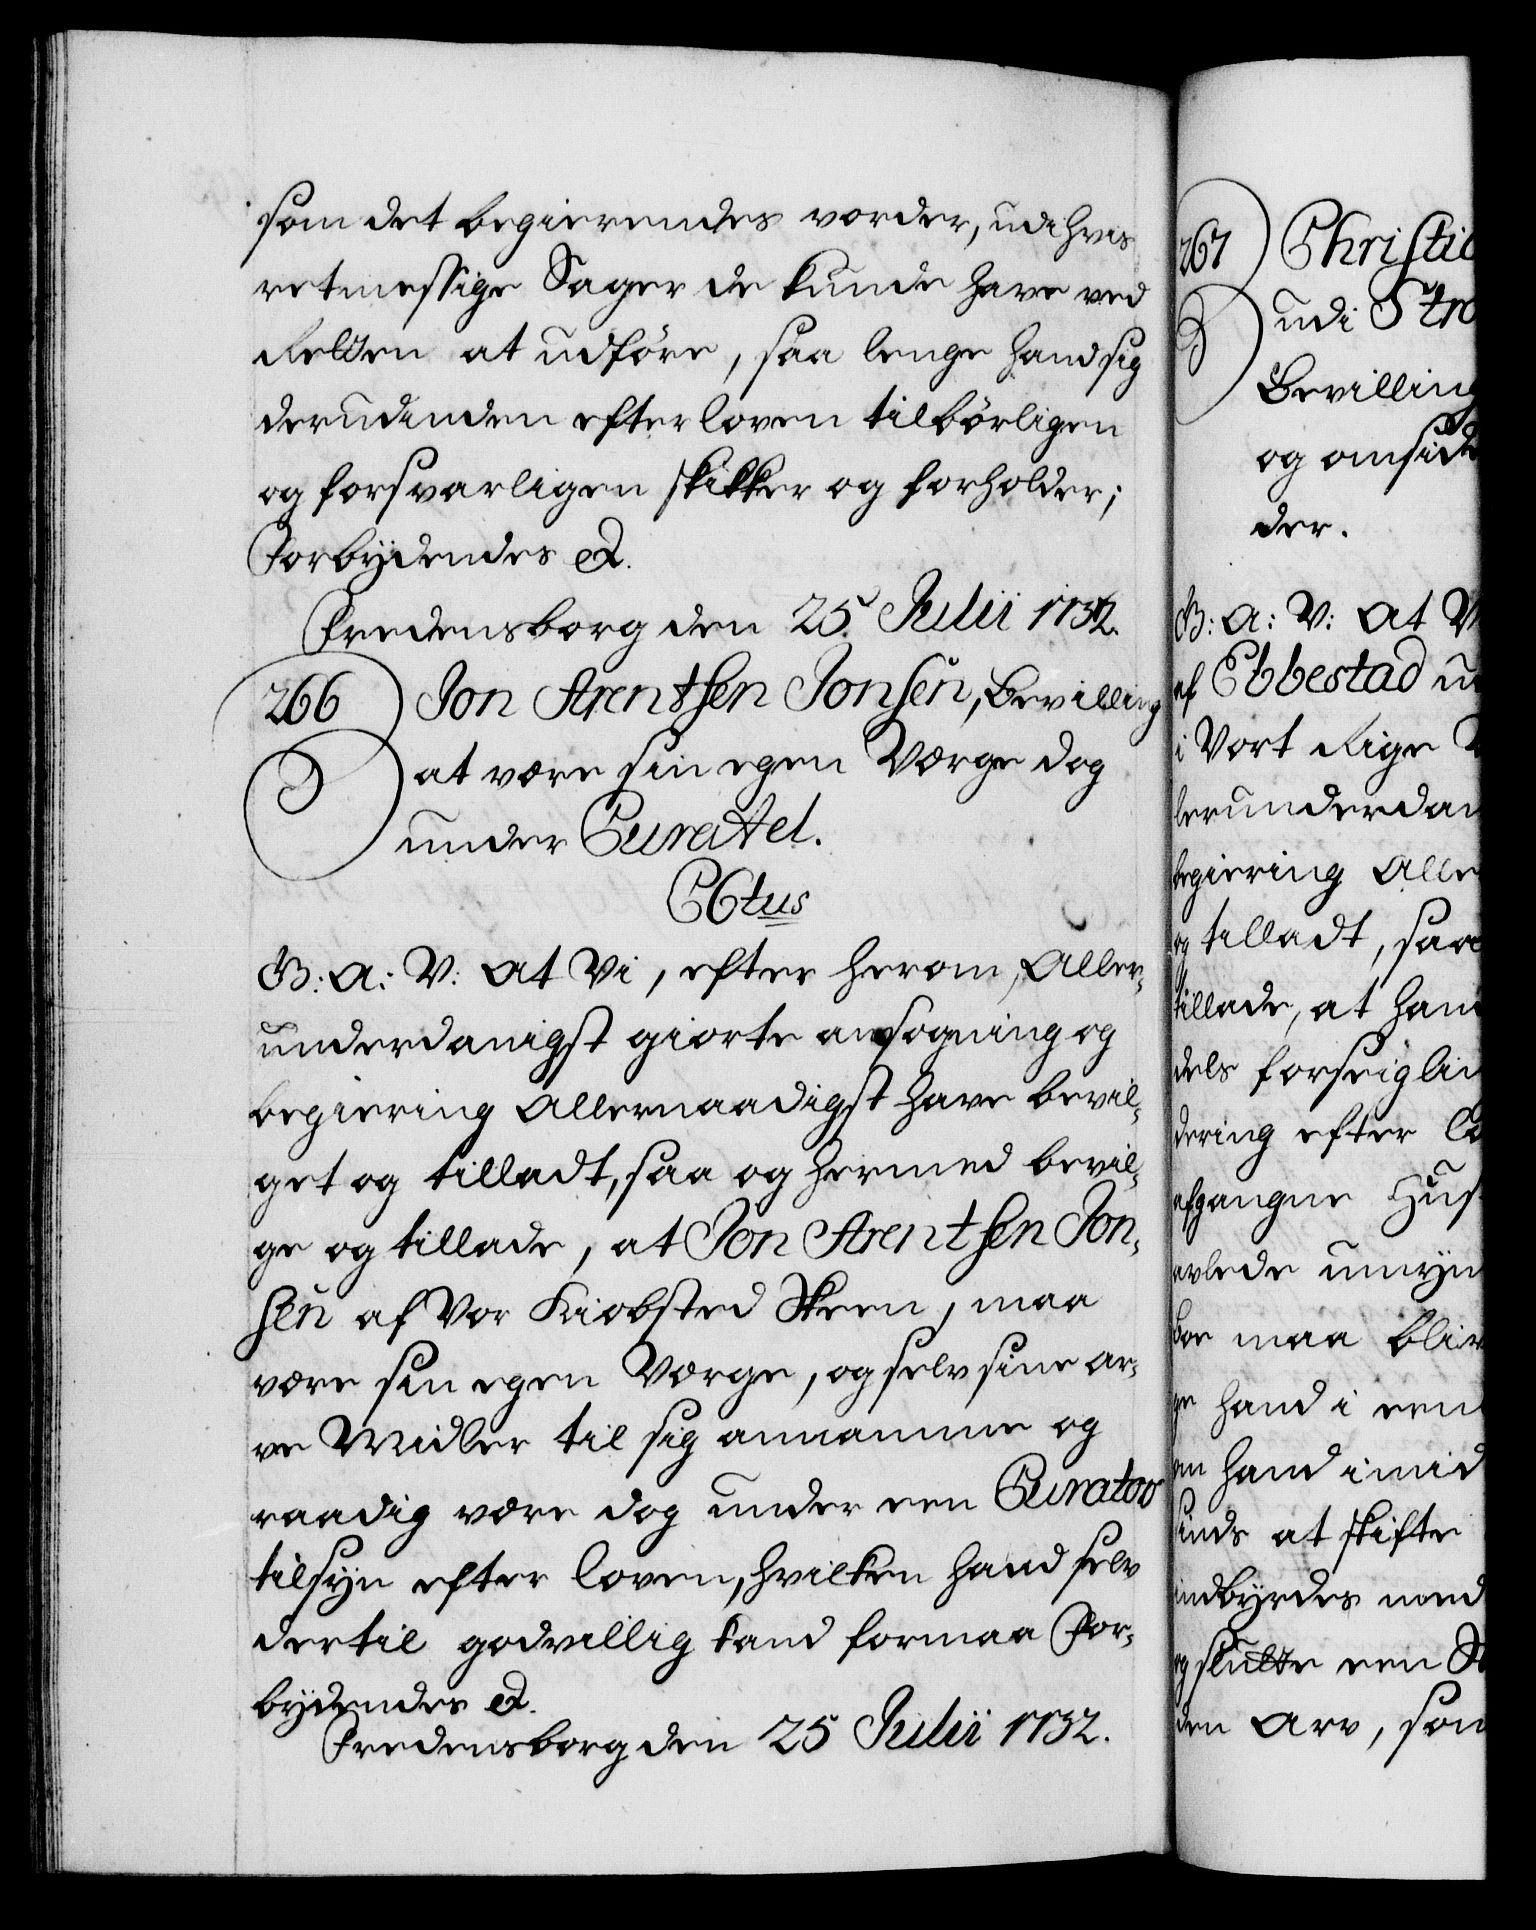 som det begierendes vorder, udi hvis
retmessige Sager de kunde have ved
Retten at udføre, saa lenge hand sig
derudinden efter loven tilbørligen
og forsvarligen skikker og forholder;
Forbydendes &.
Fredensborg den 25. Julii 1732.
266 Jon Arentsen Jonsen, Bevilling
at være sin egen Værge dog
under Curatel.
C6tus
G: A: V: At Vi, efter herom, Aller-
underdanigst giorte ansøgning og
begiering Allernaadigst have bevil-
get og tilladt, saa og hermed bevil-
ge og tillade, at Jon Arentsen Jon-
sen af Vor Kiøbsted Skeen, maa
være sin egen Værge, og selv sine ar-
ve Midler til sig annamme og
raadig være dog under een Curators
tilsyn efter loven, hvilken hand selv
dertil godvillig kand formaa For-
bydendes &.
Fredensborg den 25 Julii 1732.
267 Christi
udi Strø
Bevilling
og omsid
der.
G: A: V: At V
af Ebbestad u
i Vort Rige
lerunderdan
begiering Alle
og tilladt, saa
tillade, at han
dels forseiglin
dering efter
afgangne Hus
avlede umyn
boe maa bliv
ge hand i een
en hand imid
inds at skifte
indbyrdes med
og slutte een
den Arv, som